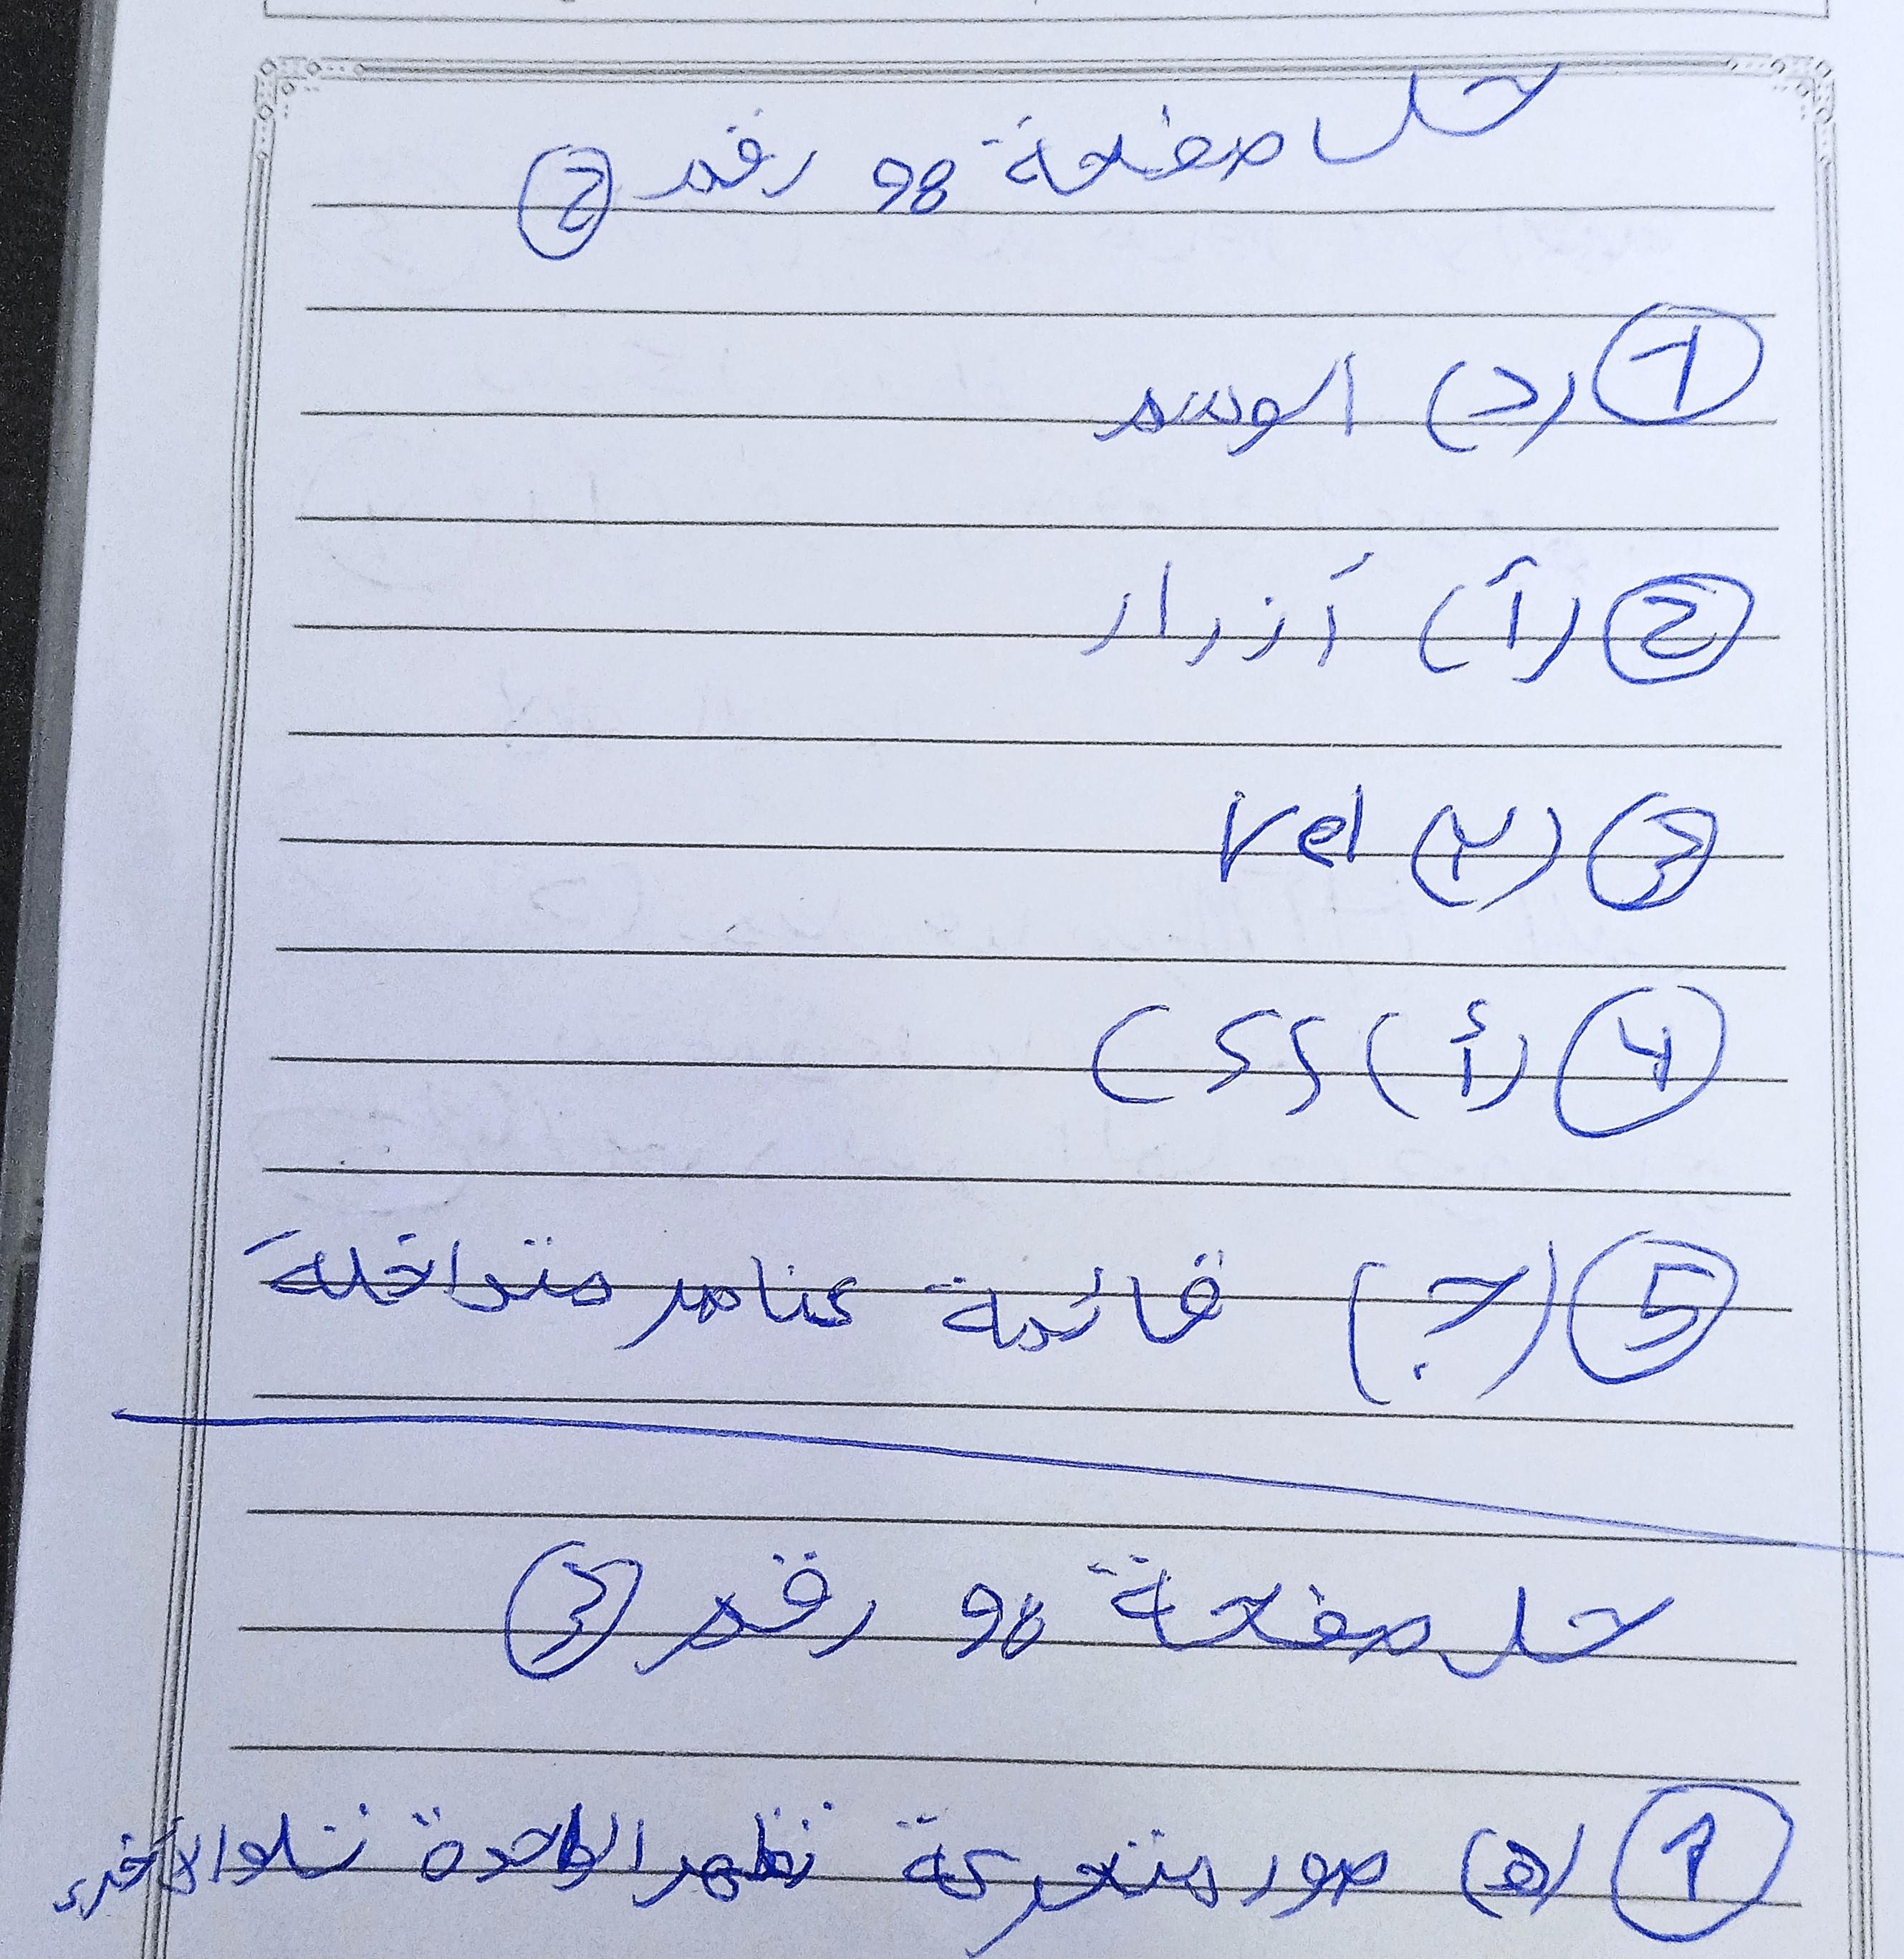 حل صفحة 98 رقم 2
1 (د) الوسم
2 (أ) أزرار
3 (ب) rel
4 (أ) CSS
5 (ج) قائمة عناصر متداخلة
حل صفحة 98 رقم 3
1 (ه) صور متحركة تظهر الواحدة تلوا الأخرى